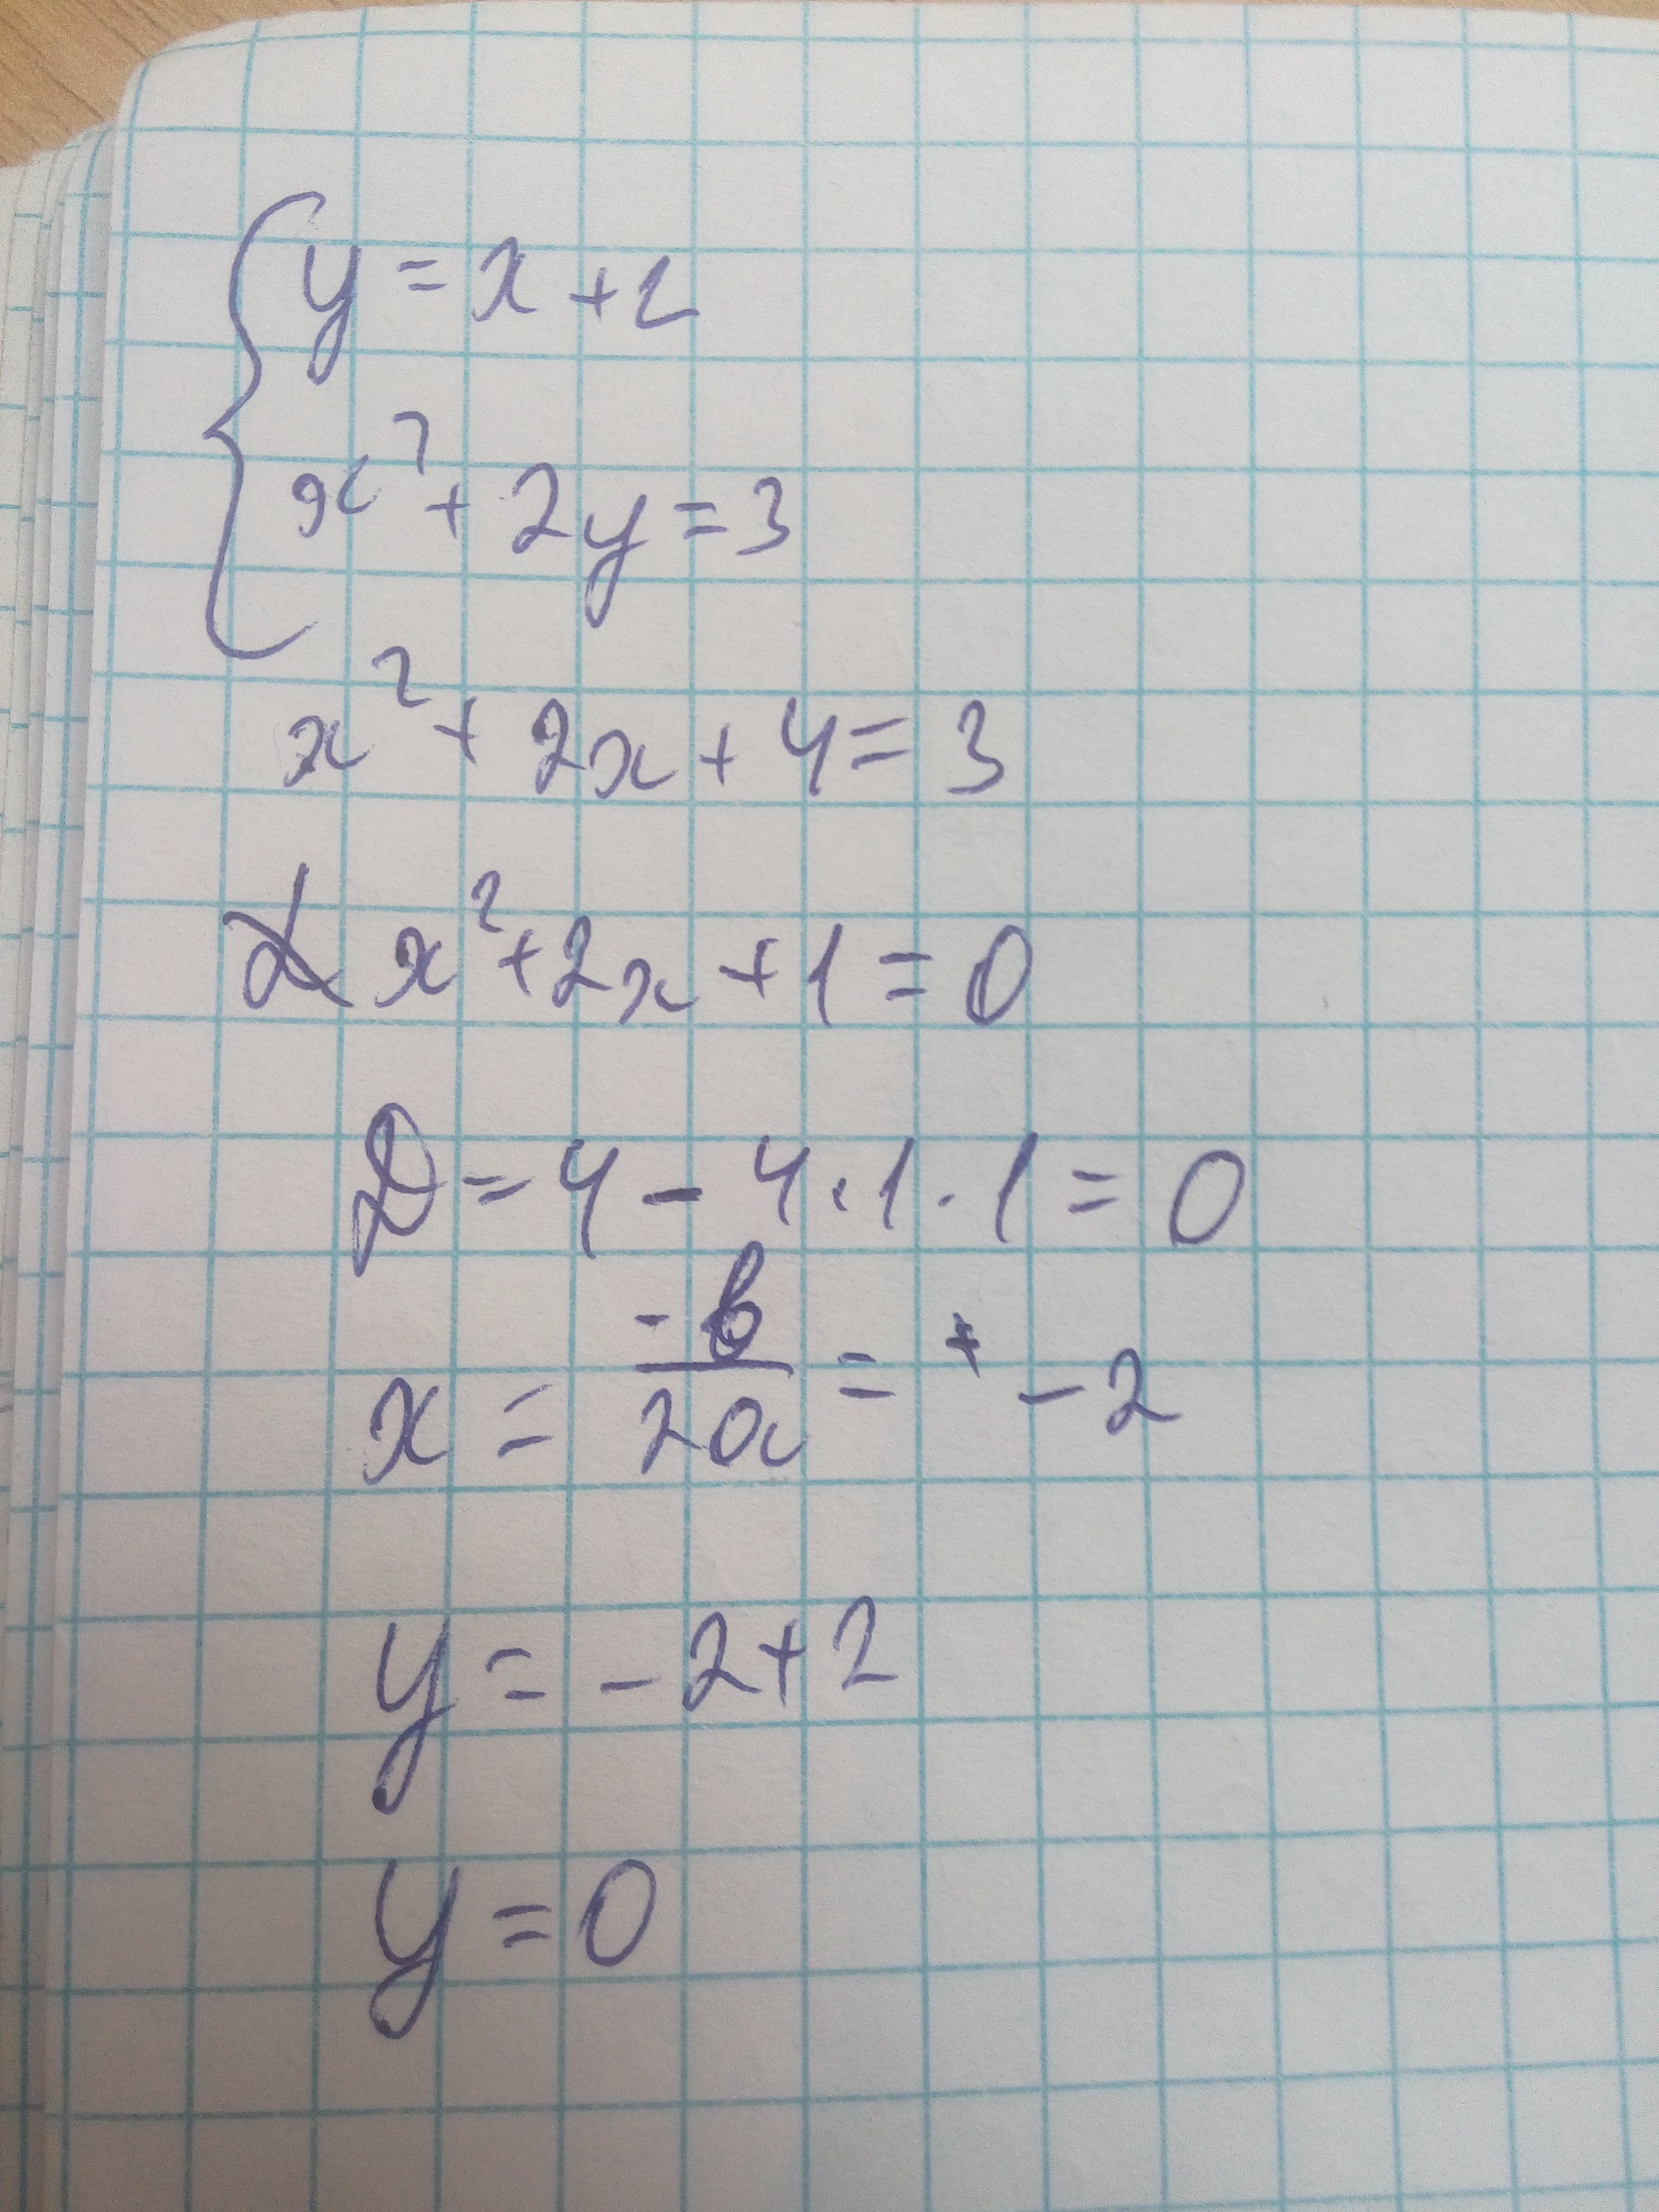 y = x + 2
x² + 2y = 3
x² + 2x + 4 = 3
x² + 2x + 1 = 0
D = 4 - 4 · 1 · 1 = 0
x = -b/2a = -2
y = -2 + 2
y = 0